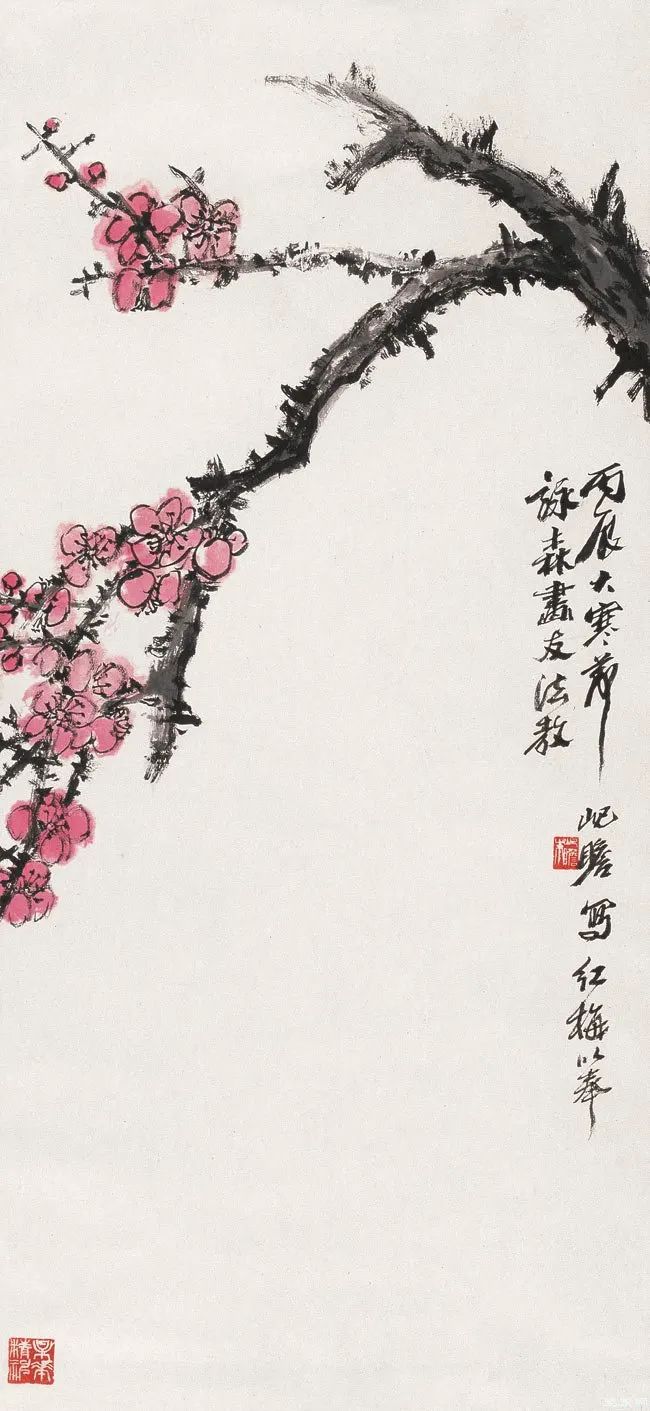 丙辰大寒節屺瞻寫紅梅以奉
詠森畫友法教
屺瞻